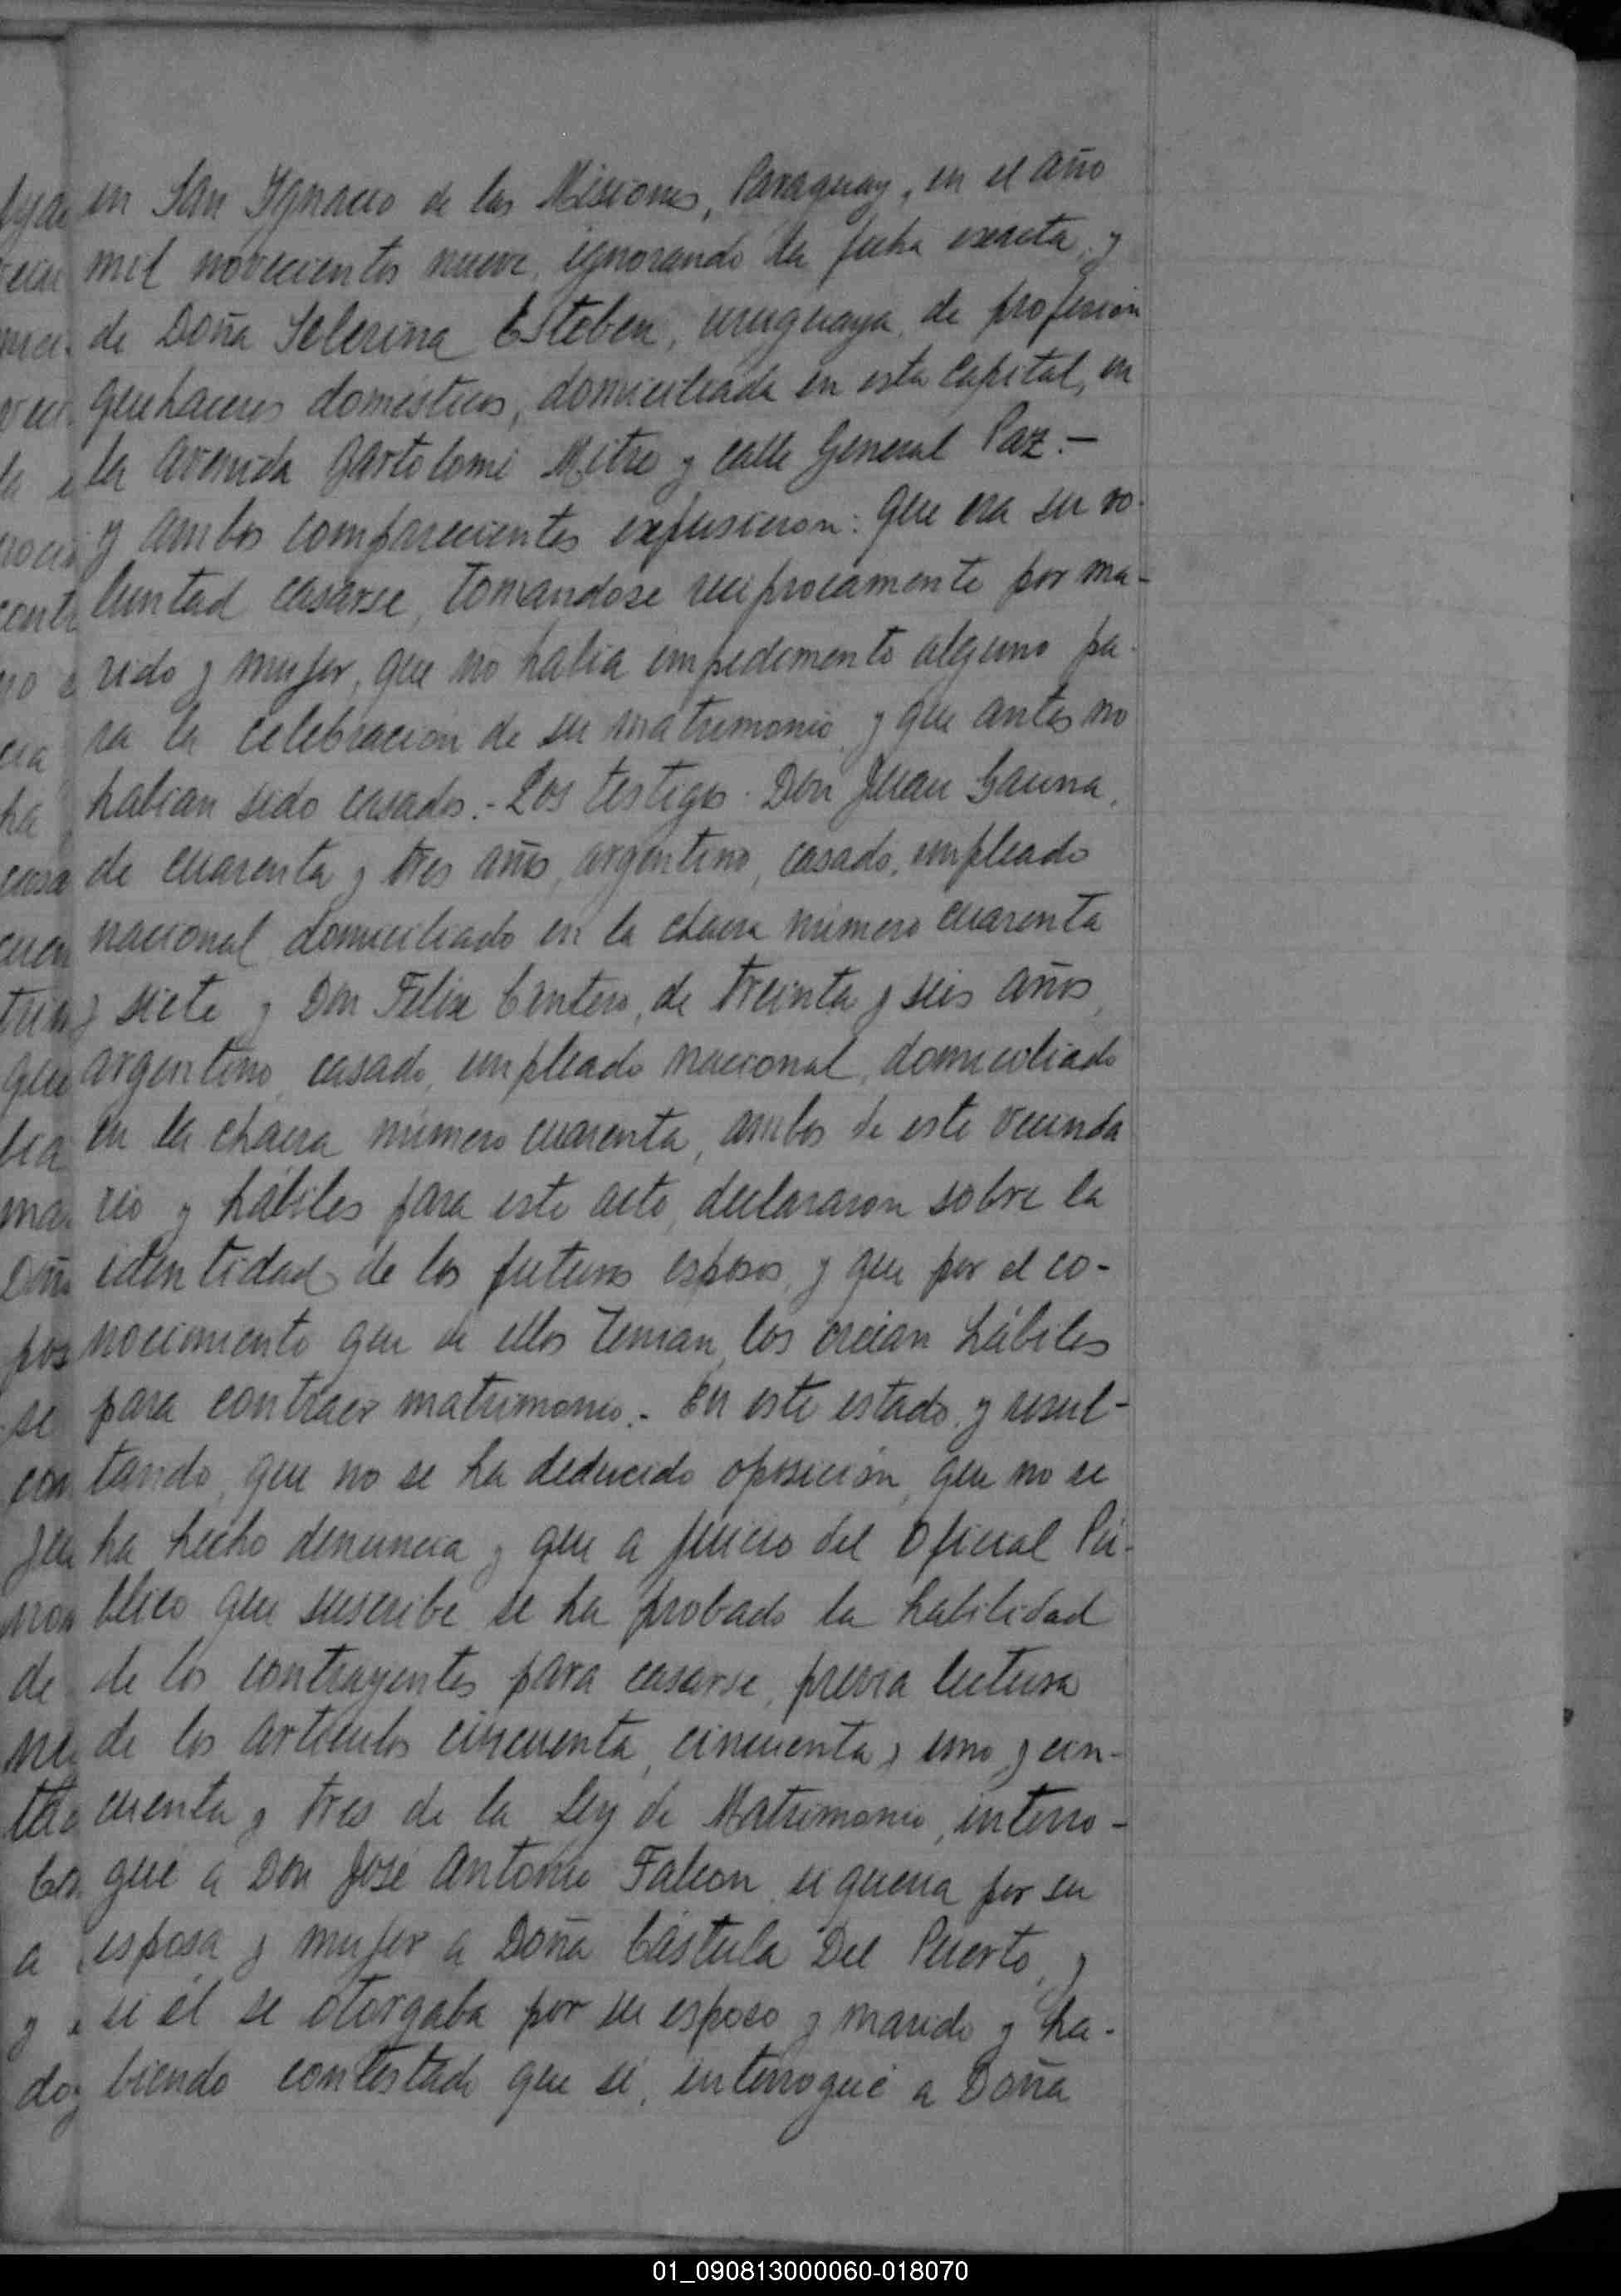 en San Ygnacio de las Misiones, Paraguay, en el año
mil novecientos nueve, ignorando la fecha exacta, y
de Doña Selerina Esteben, uruguaya, de profesión
quehaceres domésticos, domiciliada en esta Capital, en
la avenida Bartolomé Mitre y calle General Paz.-
y ambos comparecientes expusieron: que era su vo-
luntad casarse, tomandose reciprocamente por ma-
rido y mujer, que no había impedimento alguno pa-
ra la celebración de su matrimonio y que antes no
habían sido casados.- Los testigos Don Juan Gauna,
de cuarenta y tres años, argentino, casado, empleado
nacional domiciliado en la chacra número cuarenta
y siete y Don Felix Centero, de treinta y seis años,
argentino, casado, empleado nacional, domiciliado
en la chacra número cuarenta, ambos de este vecinda
rio y hábiles para este acto, declararon sobre la
identidad de los futuros esposos, y que por el co-
nocimiento que de ellos tenían, los creían hábiles
para contraer matrimonio.- En este estado, y resul-
tando, que no se ha deducido oposición, que no se
ha hecho denuncia y que a juicio del Oficial Pú-
blico que suscribe se ha probado la habilidad
de los contrayentes para casarse, previa lectura
de los artículos cincuenta, cincuenta y uno, y cin-
cuenta y tres de la Ley de Matrimonio, interro-
gué a Don José Antonio Falcon si quería por su
esposa y mujer a Doña Cástula Del Puerto, y
si él se otorgaba por su esposo y marido y ha-
biendo contestado que sí, interrogué a Doña
01_090813000060-018070